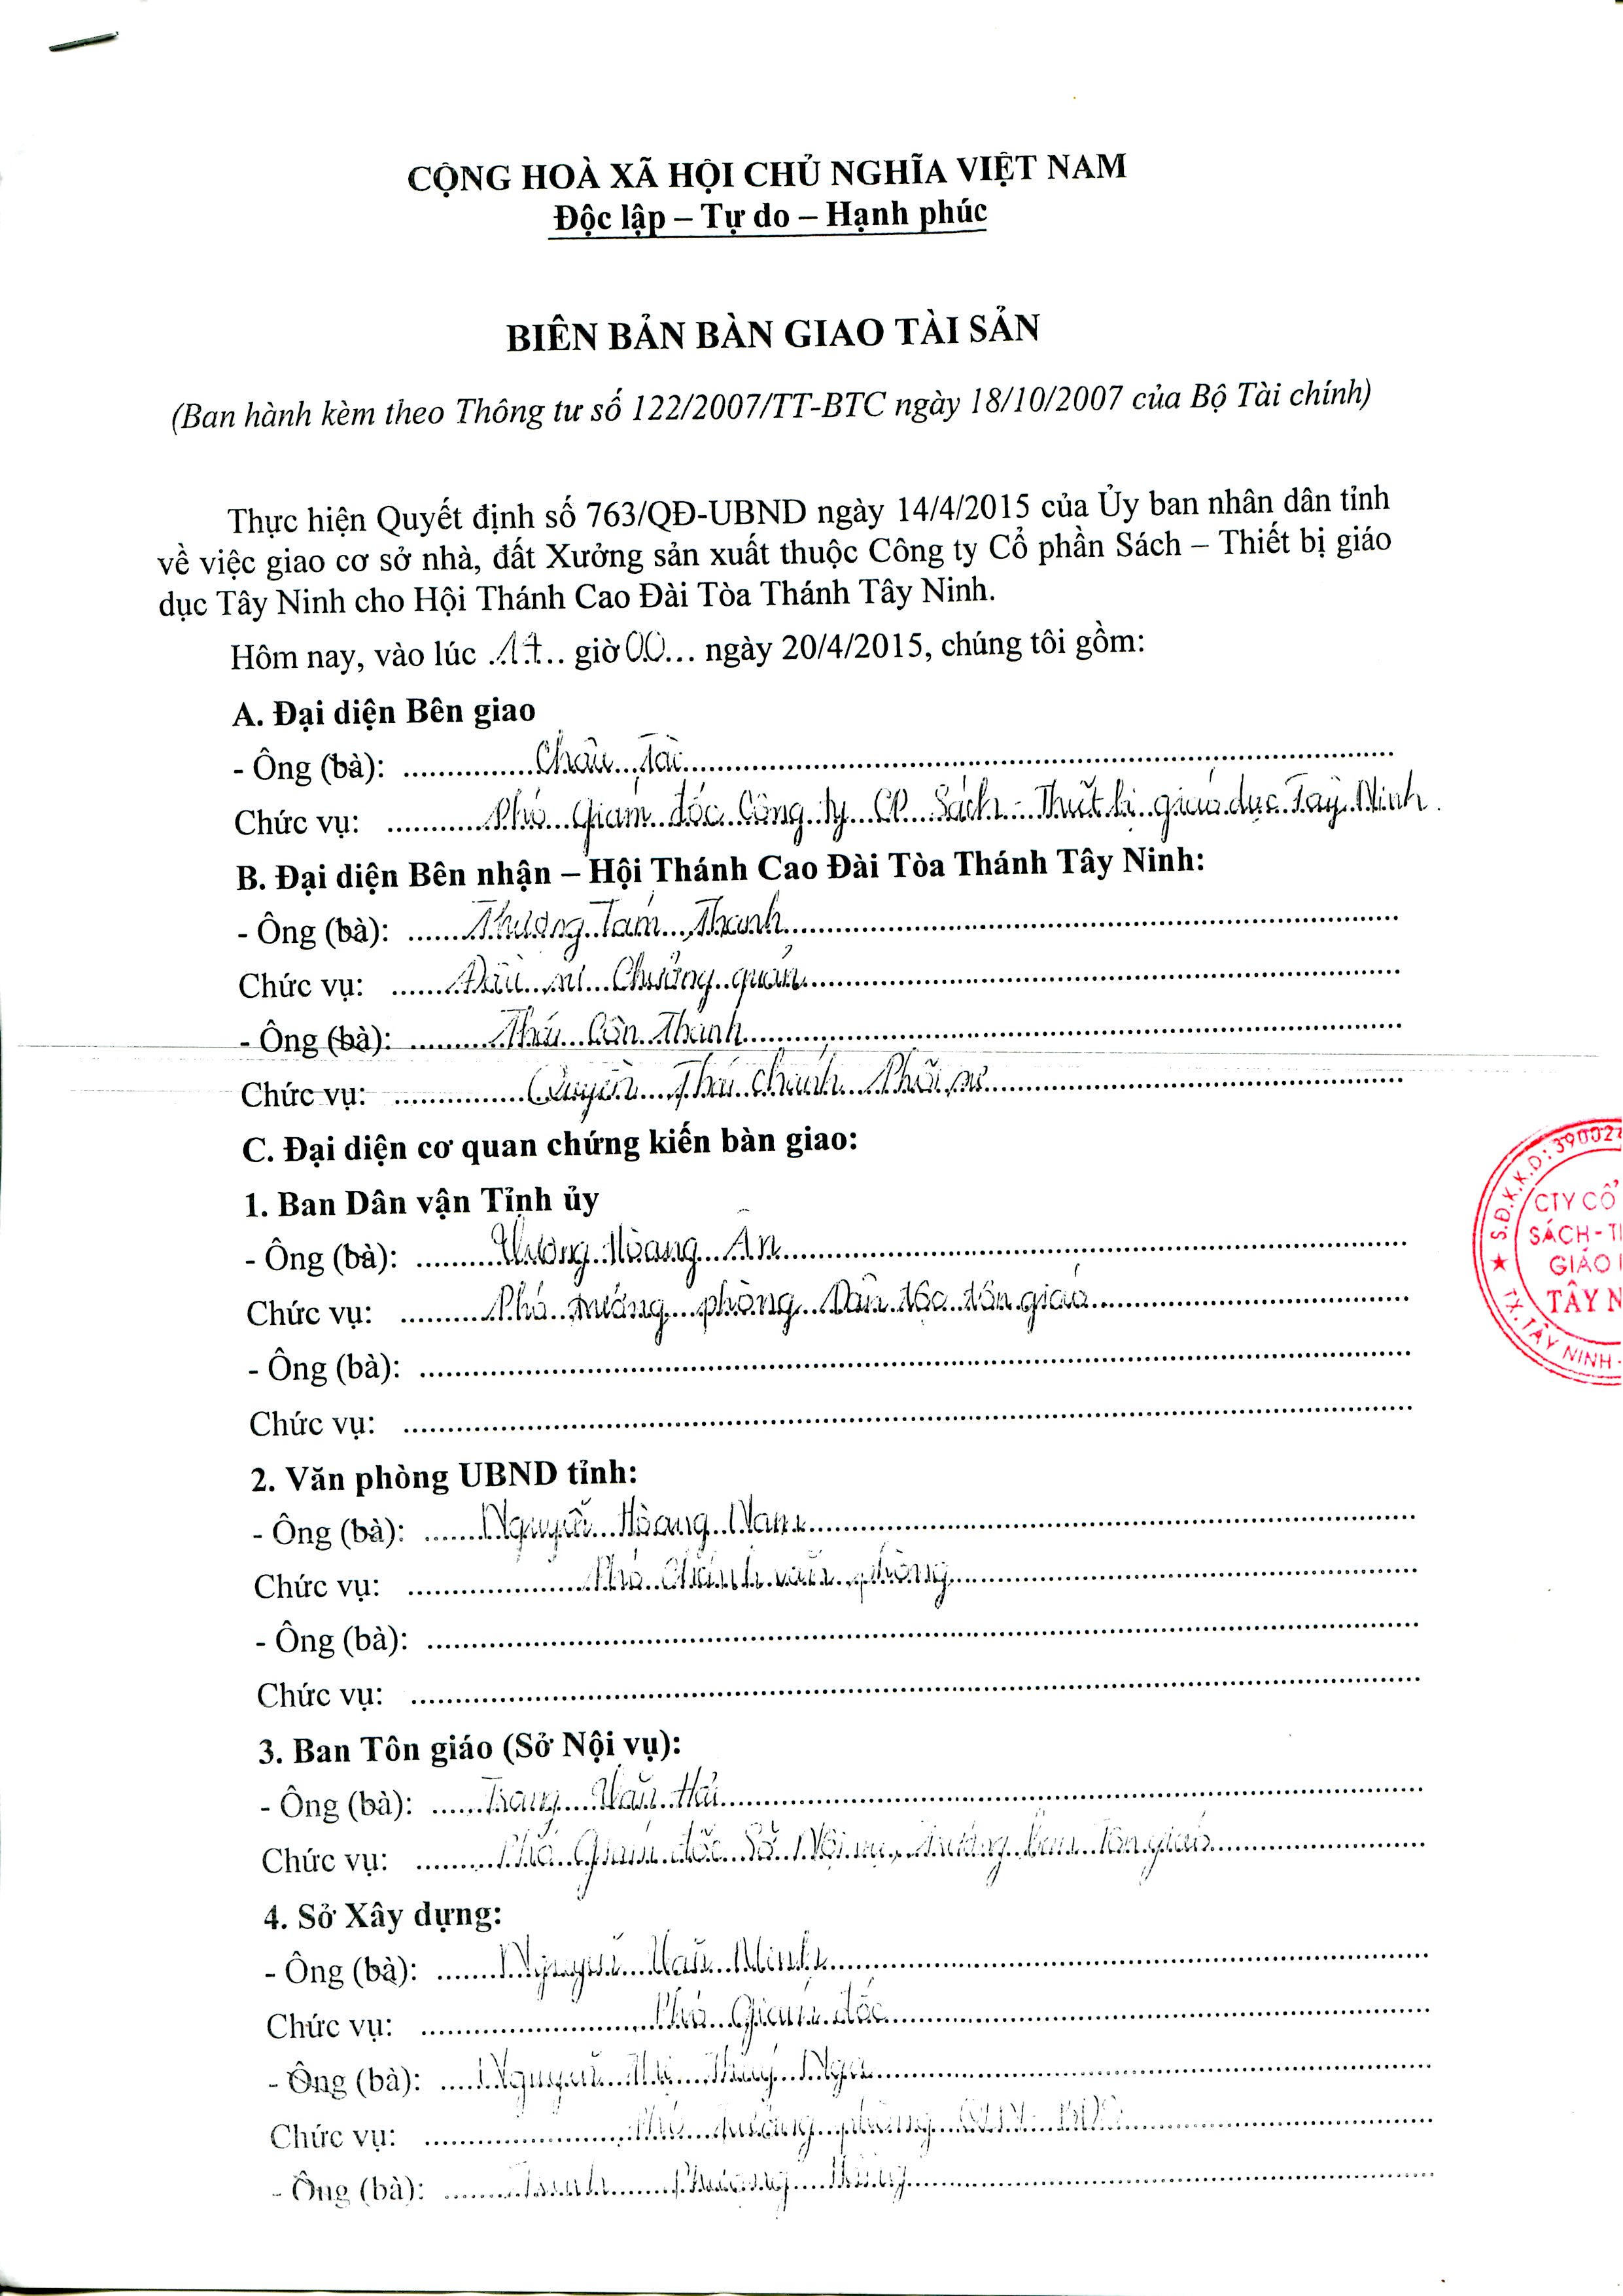 CỘNG HOÀ XÃ HỘI CHỦ NGHĨA VIỆT NAM
Độc lập – Tự do – Hạnh phúc
BIÊN BẢN BÀN GIAO TÀI SẢN
(Ban hành kèm theo Thông tư số 122/2007/TT-BTC ngày 18/10/2007 của Bộ Tài chính)
Thực hiện Quyết định số 763/QĐ-UBND ngày 14/4/2015 của Ủy ban nhân dân tỉnh
về việc giao cơ sở nhà, đất Xưởng sản xuất thuộc Công ty Cổ phần Sách – Thiết bị giáo
dục Tây Ninh cho Hội Thánh Cao Đài Tòa Thánh Tây Ninh.
Hôm nay, vào lúc 17 giờ 00 ngày 20/4/2015, chúng tôi gồm:
A. Đại diện Bên giao
- Ông (bà): Châu Tài
Chức vụ: Phó Giám đốc Công ty CP Sách - Thiết bị giáo dục Tây Ninh.
B. Đại diện Bên nhận – Hội Thánh Cao Đài Tòa Thánh Tây Ninh:
- Ông (bà): Thượng Tám Thanh
Chức vụ: Đầu sư Chưởng quản
- Ông (bà): Thái Thanh
Chức vụ: Quyền Thái Chánh Phối sư
C. Đại diện cơ quan chứng kiến bàn giao:
1. Ban Dân vận Tỉnh ủy
- Ông (bà): Hoàng Ân
Chức vụ: Phó trưởng phòng Dân tộc tôn giáo
- Ông (bà):
Chức vụ:
2. Văn phòng UBND tỉnh:
- Ông (bà): Nguyễn Hoàng Nam
Chức vụ: Phó Chánh văn phòng
- Ông (bà):
Chức vụ:
3. Ban Tôn giáo (Sở Nội vụ):
- Ông (bà): Trang Văn Hải
Chức vụ: Phó Giám đốc Sở Nội vụ, Trưởng ban Tôn giáo
4. Sở Xây dựng:
- Ông (bà): Nguyễn Văn Minh
Chức vụ: Phó Giám đốc
- Ông (bà): Nguyễn Thị Thúy Nga
Chức vụ: Phó trưởng phòng
- Ông (bà): Phương
★ S.Đ.K.K.D: 39002
CTY CỔ
SÁCH - T
GIÁO
TÂY N
TX. TÂY NINH -